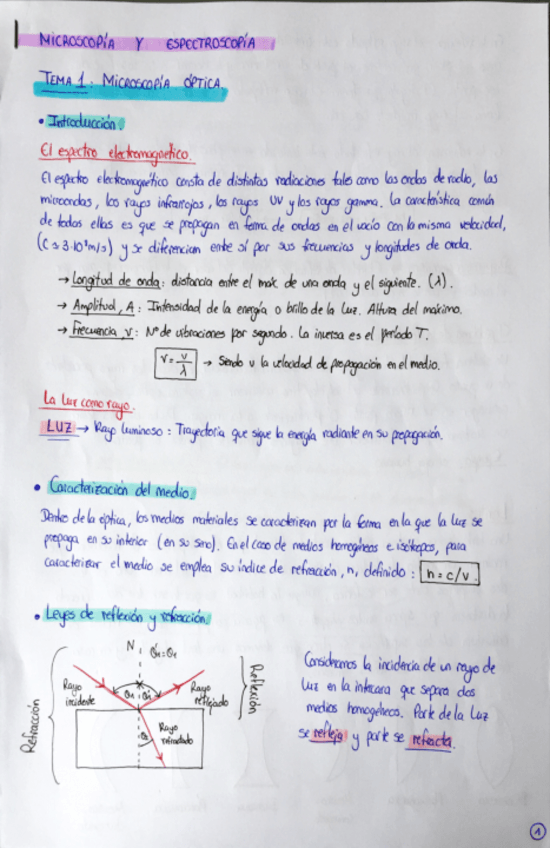 MICROSCOPÍA Y ESPECTROSCOPÍA
TEMA 1: MICROSCOPÍA ÓPTICA.
• Introducción.
El espectro electromagnético.
El espectro electromagnético consta de distintas radiaciones tales como las ondas de radio, las
microondas, los rayos infrarrojos, los rayos UV y los rayos gamma. La característica común
de todas ellas es que se propagan en forma de ondas en el vacío con la misma velocidad,
(c ≈ 3·10⁸ m/s) y se diferencian entre sí por sus frecuencias y longitudes de onda.
→ Longitud de onda: distancia entre el max. de una onda y el siguiente. (λ).
→ Amplitud, A: Intensidad de la energía o brillo de la Luz. Altura del máximo.
→ Frecuencia, ν: Nº de vibraciones por segundo. La inversa es el período T.
ν = v/λ → Siendo v, la velocidad de propagación en el medio.
La Luz como rayo.
LUZ → Rayo luminoso: Trayectoria que sigue la energía radiante en su propagación.
• Caracterización del medio.
Dentro de la óptica, los medios materiales se caracterizan por la forma en la que la luz se
propaga en su interior (en su seno). En el caso de medios homogéneos e isótropos, para
caracterizar el medio se emplea su índice de refracción, n, definido: n = c/v.
• Leyes de reflexión y refracción.
N
Rayo
incidente
Rayo
reflejado
Rayo
refractado
Refracción
Reflexión
Consideramos la incidencia de un rayo de
luz en la intercara que separa dos
medios homogéneos. Parte de la Luz
se refleja y parte se refracta.
1